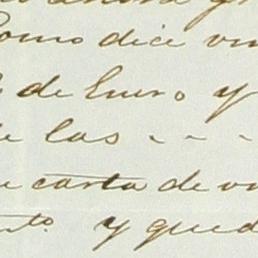 como dice
de Enero y
las - - -
carta de
to. y qued